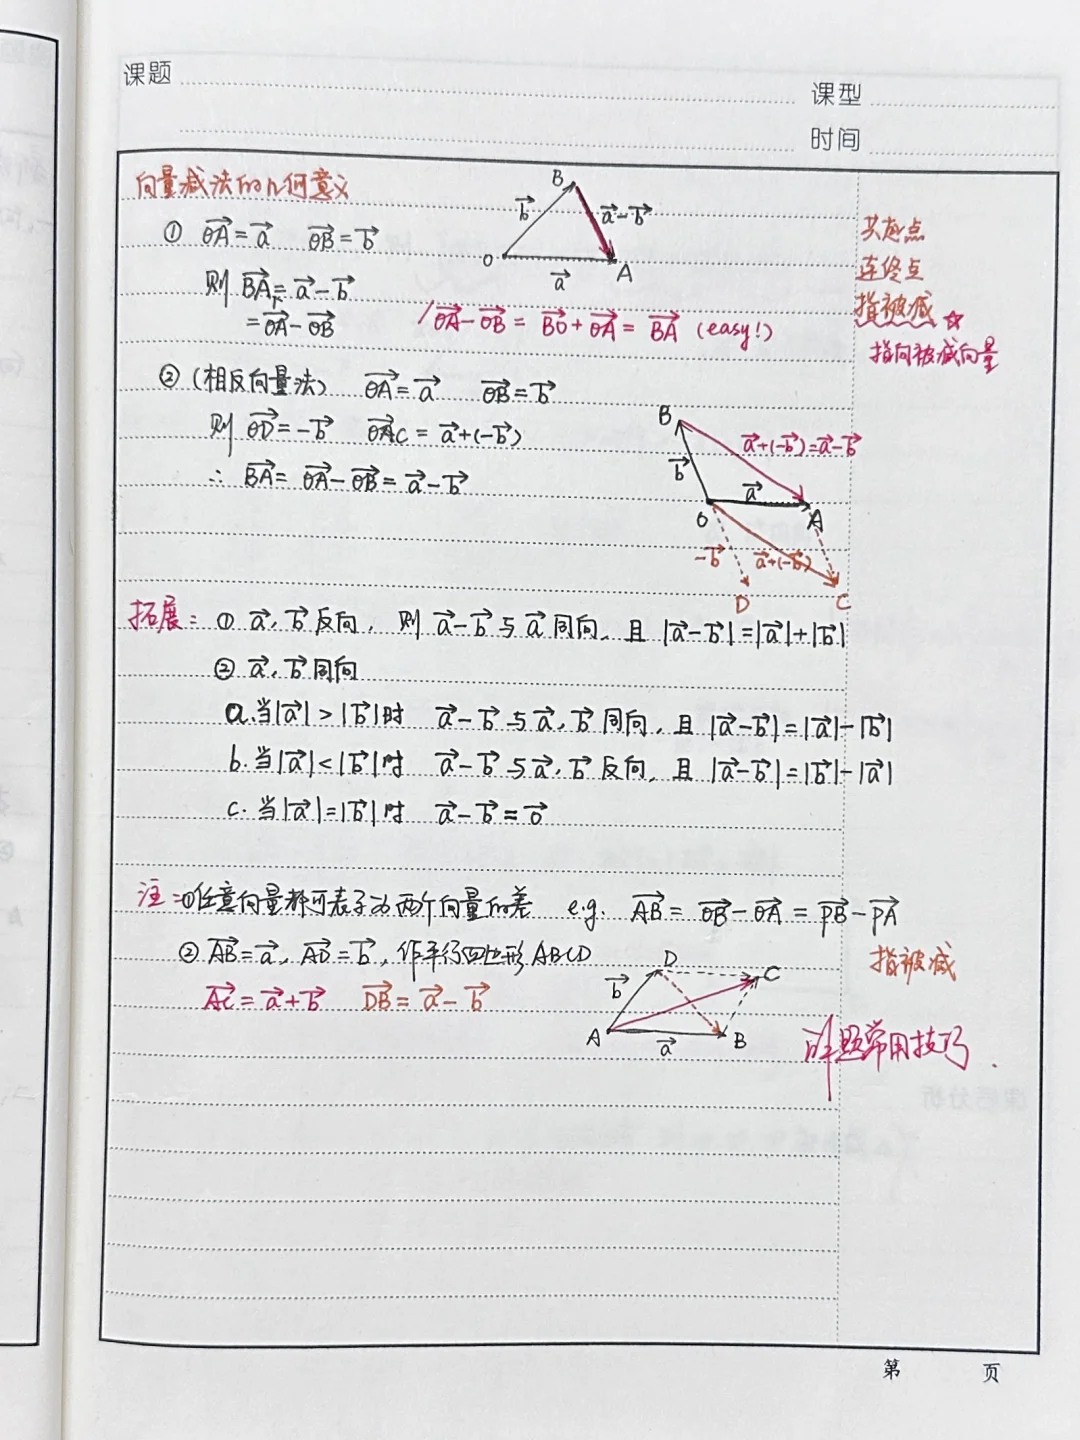 课题
课型
时间
向量减法的几何意义
① OA=a OB=b
则 BA=a-b
=OA-OB
/OA-OB=BO+OA=BA (easy!)
B
b
a-b
O
a
A
共起点
连终点
指被减☆
指向被减向量
②(相反向量法) OA=a OB=b
则 OD=-b OC=a+(-b)
∴ BA=OA-OB=a-b
B
a+(-b)=a-b
b
a
O
A
-b
a+(-b)
D
C
拓展：① a,b反向，则 a-b与a同向，且|a-b|=|a|+|b|
② a,b同向
a.当|a|>|b|时 a-b与a,b同向，且|a-b|=|a|-|b|
b.当|a|<|b|时 a-b与a,b反向，且|a-b|=|b|-|a|
c.当|a|=|b|时 a-b=0
注：①任意向量都可表示为两个向量的差 e.g. AB=OB-OA=PB-PA
指被减
② AB=a, AD=b, 作平行四边形ABCD
AC=a+b DB=a-b
D
C
b
A
a
B
解题常用技巧.
第 页